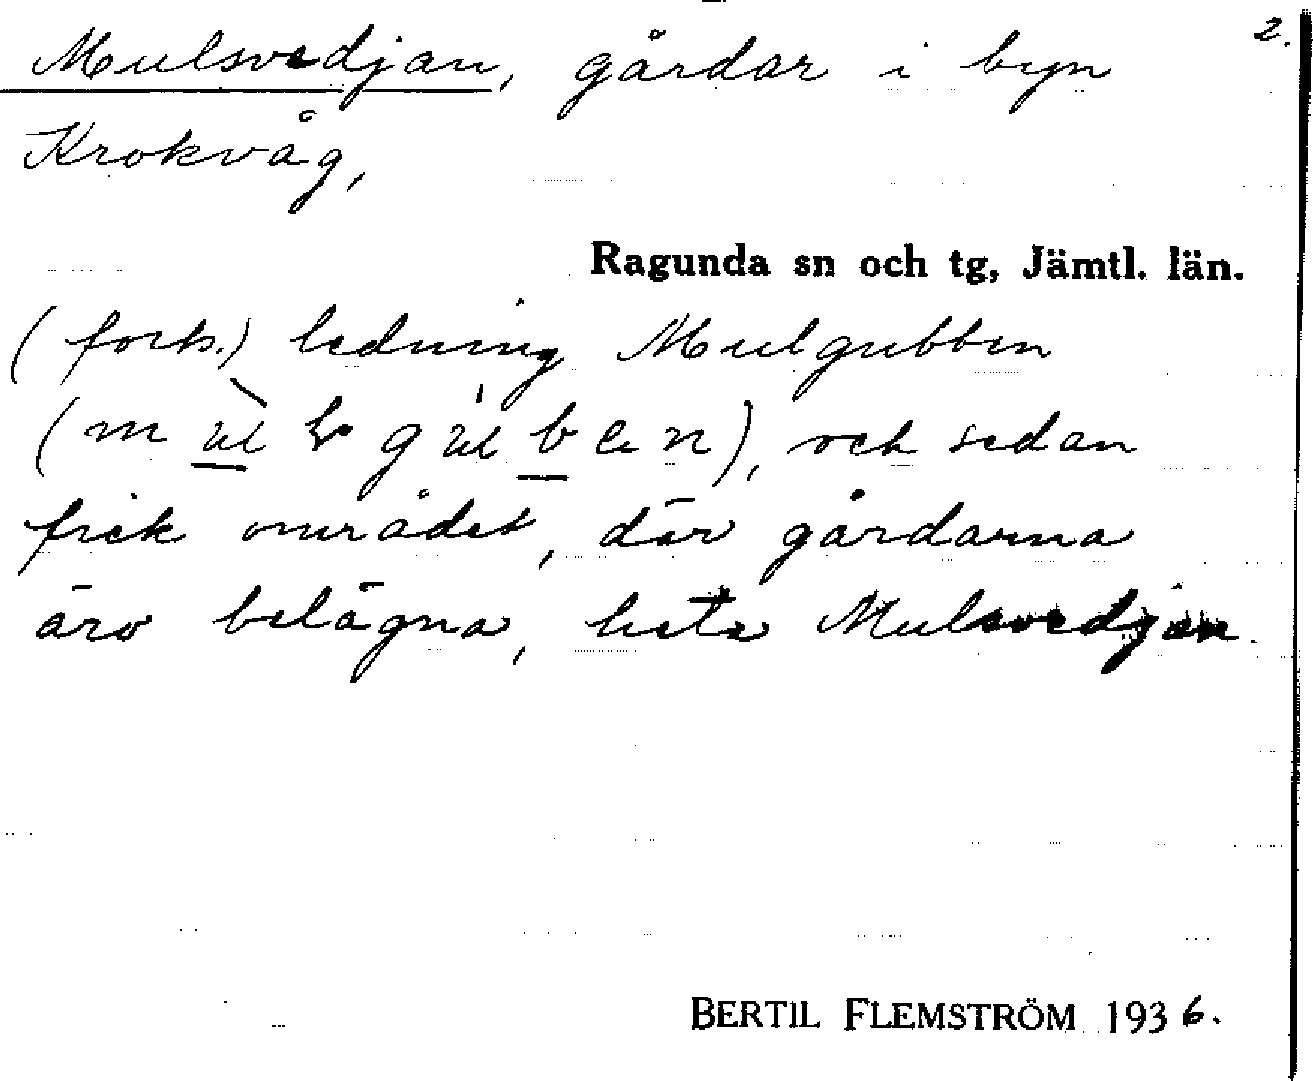 2.
Mulsvedjan, gårdar i byn
Krokvåg,
Ragunda sn och tg, Jämtl. län.
(forts.) ledning Mulgubben
och sedan
fick området, där gårdarna
äro belägna, heta Mulsvedjan.
BERTIL FLEMSTRÖM 1936.